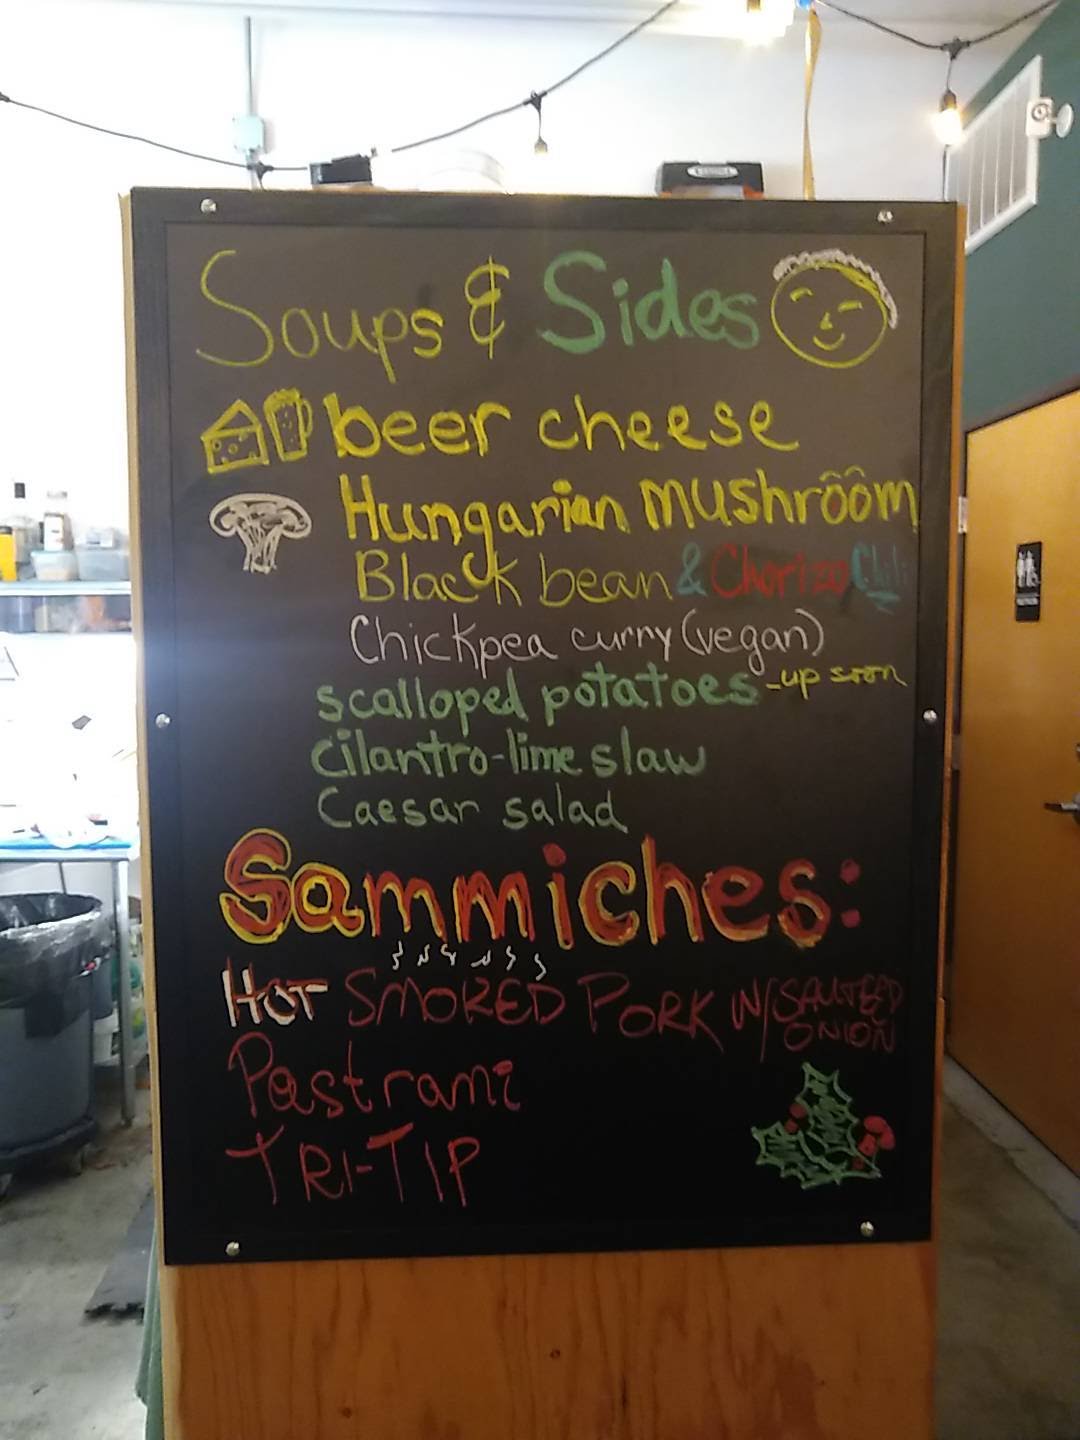 Soups & Sides
beer cheese
Hungarian Mushroom
Black bean & Chorizo Chili
Chickpea curry (vegan)
scalloped potatoes - up soon
cilantro-lime slaw
Caesar salad
Sammiches:
HOT SMOKED PORK W/ SAUTEED
ONION
Pastrami
TRI-TIP